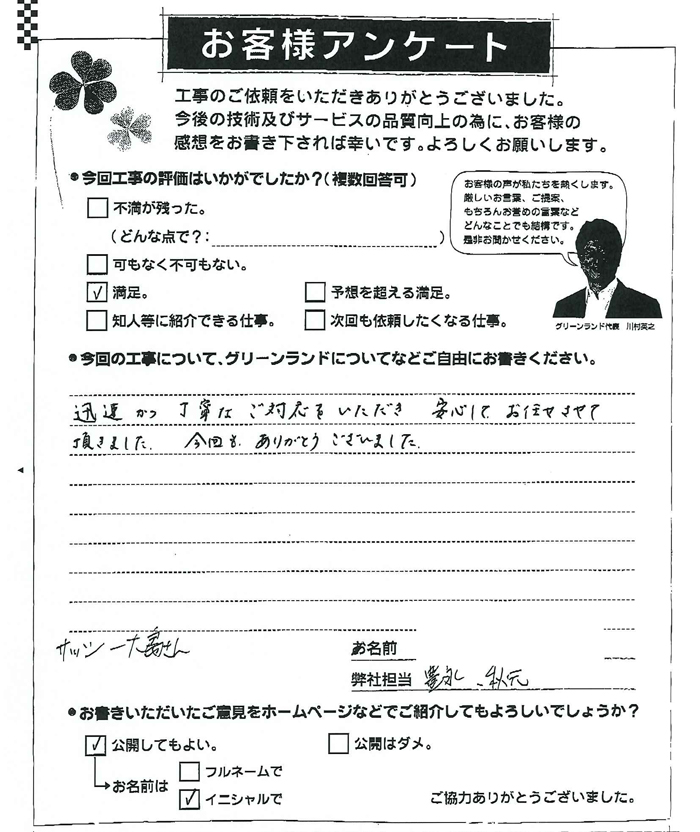 お客様アンケート
工事のご依頼をいただきありがとうございました。
今後の技術及びサービスの品質向上の為に、お客様の
感想をお書き下されば幸いです。よろしくお願いします。
●今回工事の評価はいかがでしたか?(複数回答可)
□不満が残った。
(どんな点で?: )
□可もなく不可もない。
☑満足。 □予想を超える満足。
□知人等に紹介できる仕事。 □次回も依頼したくなる仕事。
お客様の声が私たちを熱くします。
厳しいお言葉、ご提案、
もちろんお誉めの言葉など
どんなことでも結構です。
是非お聞かせください。
グリーンランド代表 川村英之
●今回の工事について、グリーンランドについてなどご自由にお書きください。
迅速かつ丁寧なご対応をいただき 安心してお任せさせて
頂きました。今回もありがとうございました。
お名前
弊社担当 豊永、秋元
●お書きいただいたご意見をホームページなどでご紹介してもよろしいでしょうか?
☑公開してもよい。 □公開はダメ。
お名前は □フルネームで
☑イニシャルで
ご協力ありがとうございました。